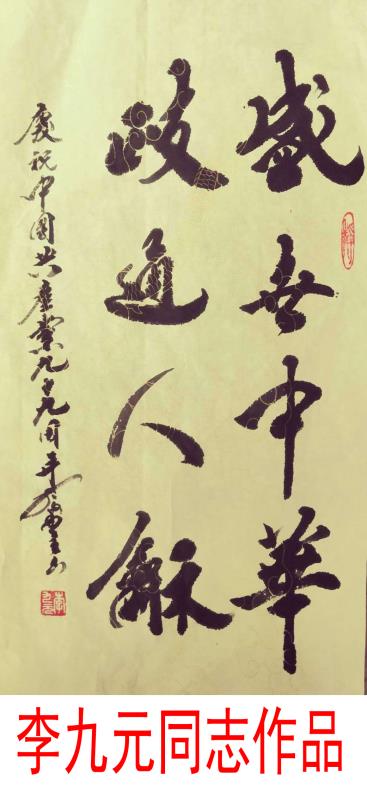 盛世中華
政通人龢
慶祝中國共產黨九十九周年
李九元同志作品